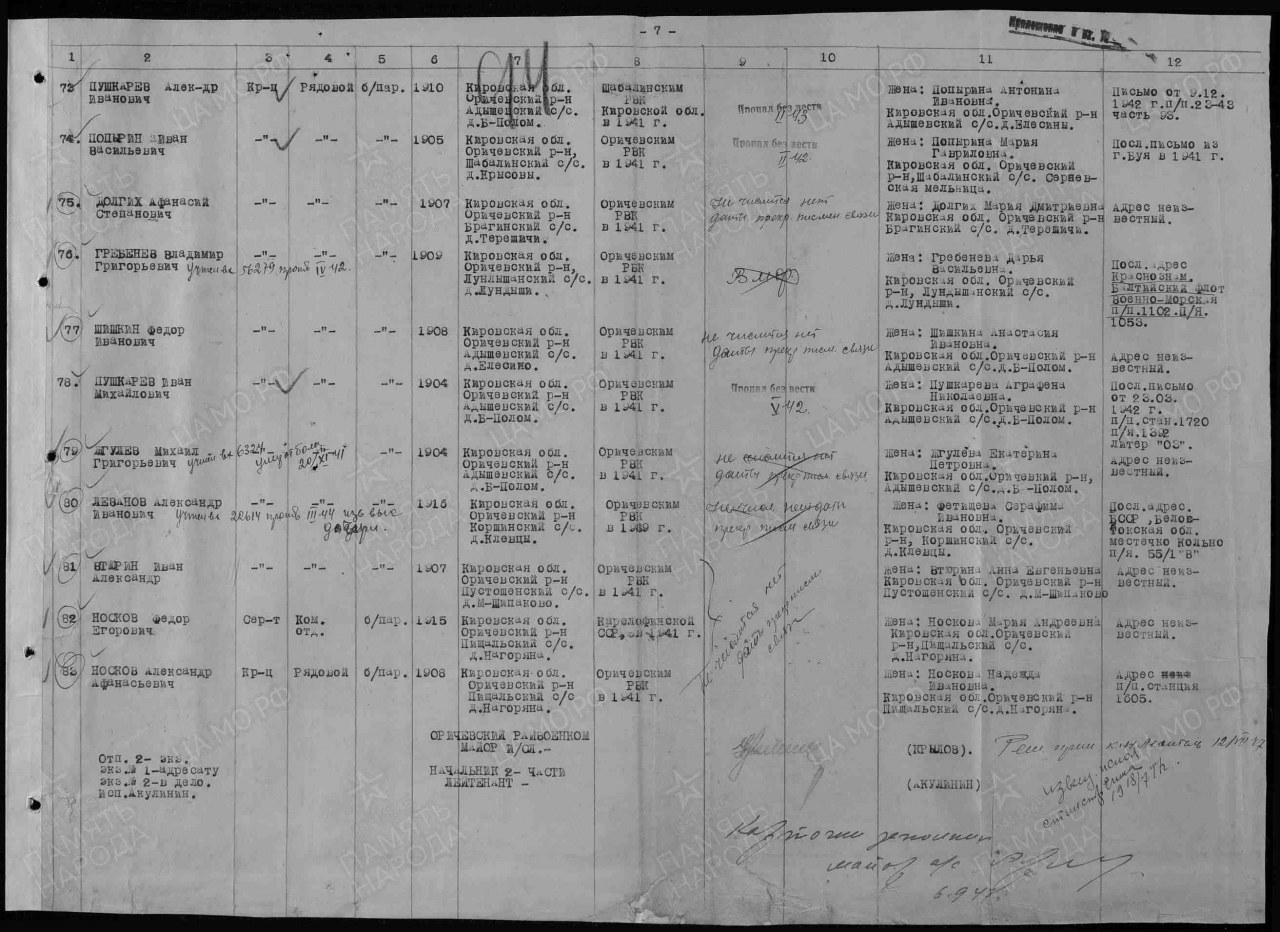 - 7 -
1 2 3 4 5 6 7 8 9 10 11 12
73. ПУШКАРЕВ Алек-др Кр-ц Рядовой б/пар. 1910 Кировская обл. Шабалинским Пропал без вести Жена: Попырина Антонина Письмо от 9.12.
Иванович Оричевский р-н РВК II-43 Ивановна. 1942 г.п/п.23-43
Адышевский с/с. Кировской обл. Кировская обл.Оричевсий р-н часть 93.
д.Б-Полом. в 1941 г. Адышевский с/с.д.Елесины.
74. ПОПЫРИН Иван -"- -"- -"- 1905 Кировская обл. Оричевским Пропал без вести Жена: Попырина Мария Посл.письмо из
Васильевич Оричевский р-н, РВК II-42. Гавриловна. г.Буя в 1941 г.
Шабалинский с/с. в 1941 г. Кировская обл. Оричевский
д.Крысовы. р-н,Шабалинский с/с. Серяев-
ская мельница.
75. ДОЛГИХ Афанасий -"- -"- -"- 1907 Кировская обл. Оричевским не числится нет Жена: Долгих Мария Дмитриевна Адрес неиз-
Степанович Оричевский р-н РВК даты прекр. писмен связи Кировская обл. Оричевский р-н вестный.
Брагинский с/с. в 1941 г. Брагинский с/с. д.Терешичи.
д.Терешичи.
76. ГРЕБЕНЕВ Владимир -"- -"- -"- 1909 Кировская обл. Оричевским Жена: Гребенева Дарья Посл.адрес
Григорьевич 56279 IV-42. Оричевский р-н, РВК ВМФ Васильевна. Краснознам.
Лундышанский с/с. в 1941 г. Кировская обл. Оричевский Балтийский флот
д.Лундыши. р-н, Лундышанский с/с. Военно-Морская
д.Лундыши. п/п.1102 п/я.
1053.
77 ШИШКИН Федор -"- -"- -"- 1908 Кировская обл. Оричевским не числится нет Жена: Шишкина Анастасия
Иванович Оричевский р-н РВК даты прекр писм. связи Ивановна.
Адышевский с/с. в 1941 г. Кировская обл.Оричевский р-н Адрес неиз-
д.Елесино. Адышевский с/с.д.Б-Полом. вестный.
78. ПУШКАРЕВ Иван -"- -"- -"- 1904 Кировская обл. Оричевским Пропал без вести Жена: Пушкарева Аграфена Посл.письмо
Михайлович Оричевский р-н РВК V-42. Николаевна. от 23.03.
Адышевский с/с. в 1941 г. Кировская обл.Оричевский р-н 1942 г.
д.Б-Полом. Адышевский с/с.д.Б-Полом. п/п.стан.1720
п/я.1392
Литер "03".
79 ЖГУЛЕВ Михаил -"- 1904 Кировская обл. Оричевским не числится нет Жена: Жгулева Екатерина Адрес неиз-
Григорьевич Оричевский р-н РВК даты прекр писм связи Петровна. вестный.
Адышевский с/с. в 1941 г. Кировская обл. Оричевкий р-н,
д.Б-Полом. Адышевский с/с.д.Б -Полом.
80 ЛЕВАНОВ Александр -"- -"- -"- 1916 Кировская обл. Оричевским Жена: Фетищева Серафима Посл.адрес.
Иванович 22614 III-44 Оричевский р-н РВК прекр писм связи Ивановна. БССР,Белос-
Коршинский с/с. в 1939 г. Кировская обл. Оричевский токская обл.
д.Клевцы. р-н, Коршинский с/с. местечко Кольно
д.Клевцы. п/я. 55/1"В"
81 ВТЮРИН Иван -"- -"- -"- 1907 Кировская обл. Оричевским Жена: Втюрина Анна Евгеньевна Адрес неиз-
Александр Оричевский р-н РВК Кировская обл. Оричевский р-н вестный.
Пустошенский с/с. в 1941 г. Пустошенский с/с. д.М-Шипаково
д.М-Шипаково.
не числится нет
даты прекр писм
связи
82 НОСКОВ Федор Сер-т Ком. б/пар. 1915 Кировская обл. Карелофинской Жена: Носкова Мария Андреевна Адрес неиз-
Егорович отд. Оричевский р-н ССР, в 1941 г. Кировская обл.Оричевский вестный.
Пищальский с/с. р-н,Пищальский с/с.
д.Нагоряна. д.Нагоряна.
83 НОСКОВ Александр Кр-ц Рядовой б/пар. 1908 Кировская обл. Оричевским Жена: Носкова Надежда Адрес неиз
Афанасьевич Оричевский р-н РВК Ивановна. п/п.станция
Пищальский с/с в 1941 г. Кировская обл.Оричевский р-н 1605.
д.Нагоряна. Пищальский с/с.д.Нагоряна.
ОРИЧЕВСКИЙ РАЙВОЕНКОМ
МАЙОР И/СЛ.- (КРЫЛОВ).
Отп. 2- экз.
экз.№ 1-адресату НАЧАЛЬНИК 2- ЧАСТИ
экз.№ 2-в дело. ЛЕЙТЕНАНТ - (АКУЛИНИН)
исп.Акулинин.
Карточки заполнил
майор а/с
6.9.47г.